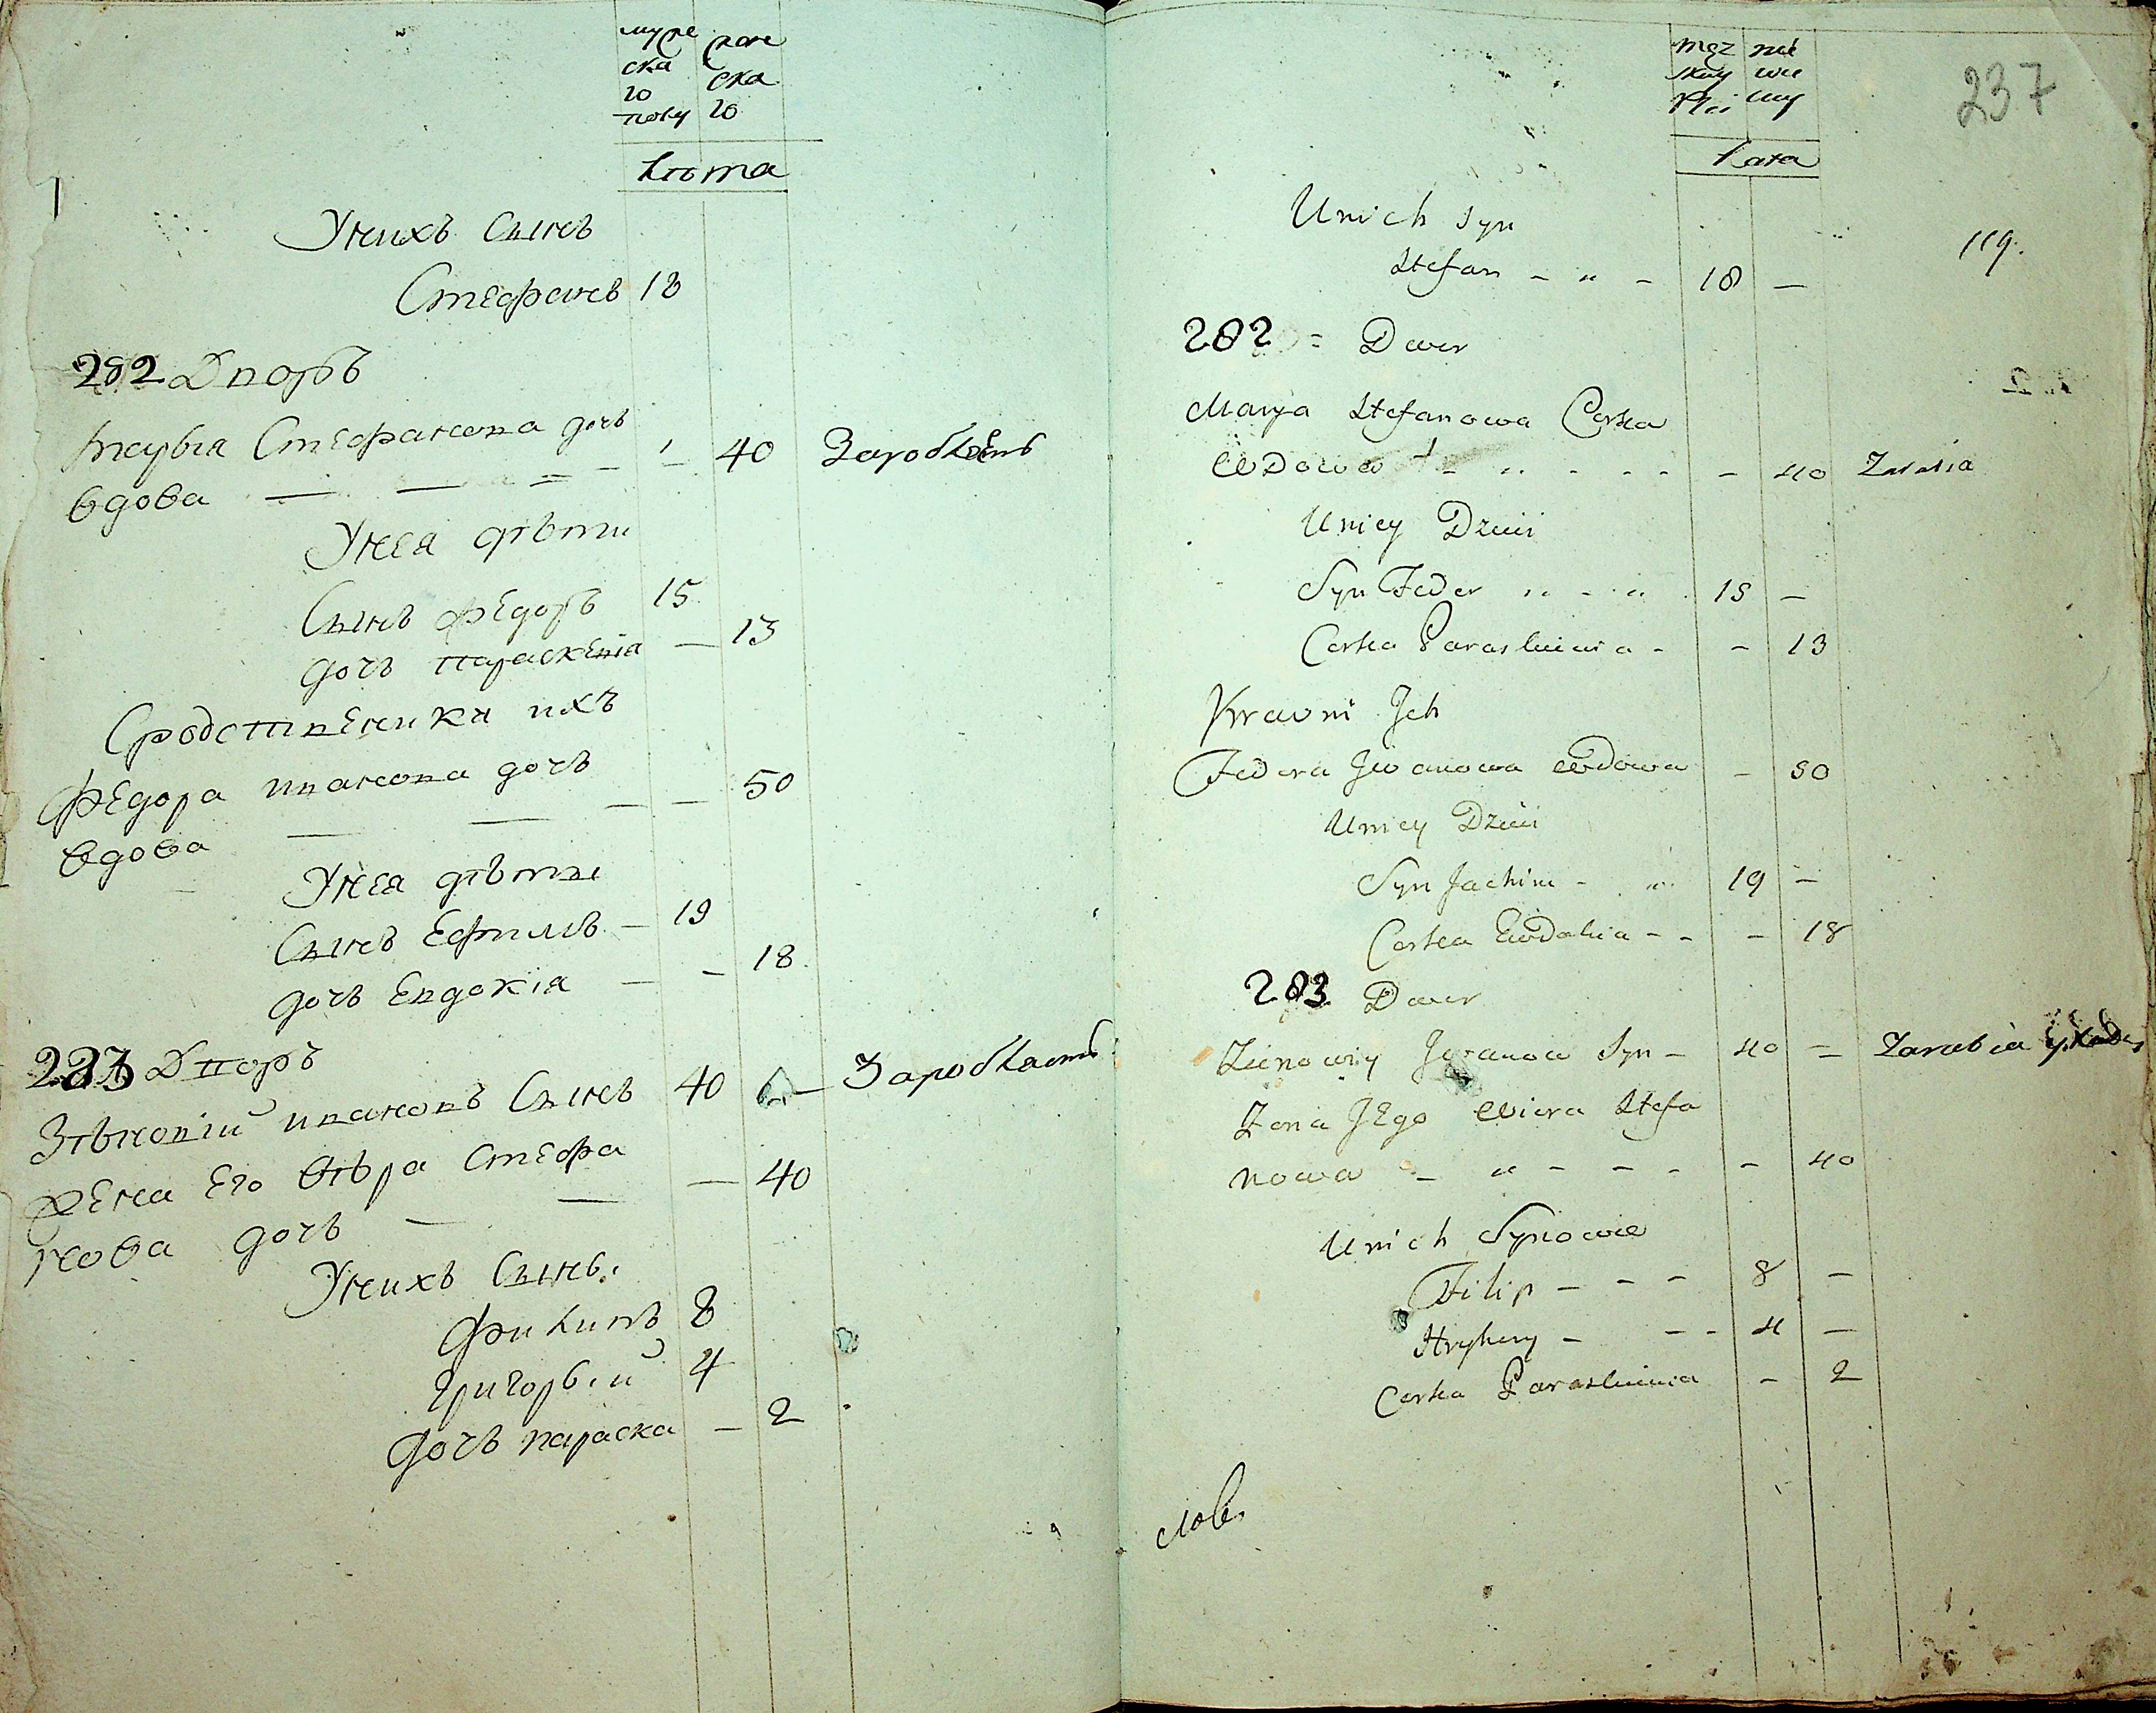 муже
ска
го
полу
женс
ска
го
Лѣта
Унихъ Сынъ
Стефанъ 18
282 Дворъ
марья Стефанова дочь
вдова — — — 40 Заробкомъ
Унея дѣти
Сынъ федоръ 15
дочь параскевія — 13
Сродственики ихъ
федора иванова дочь
вдова — — — — 50
Унея дѣти
Сынъ Ефимъ — 19
дочь Евдокія — — 18
283 Дворъ
Зѣновій ивановъ Сынъ 40 — Заробкомъ
жена Его вѣра Стефа
нова дочь — — — 40
Унихъ Сыны
филипъ 8
григорьій 4
дочь параска — 2
męz
skey
Płci
nie
wie
scey
Lata
237
119.
Unich Syn
Stefan - „ - 18 —
282 = Dwor
Marya Stefanowa Corka
Wdowa - „ - - - - - 40 Zarabia
Uniey Dzieci
Syn Fedor „ - „ 15 —
Corka Paraskiewia - - 13
Krewni Jch
Fedora Jwanowa Wdowa - 50
Uniey Dzieci
Syn Jachim - „ 19 —
Corka Ewdokia - - - 18
283 Dwor
Zienowiy Jwanow Syn - 40 = Zarabia
Zona JEgo Wiera Stefa
nowa - „ - - - - 40
Unich Synowie
Filip - - - 8 —
Hryhory - - - 4 —
Corka Paraskiewia - 2